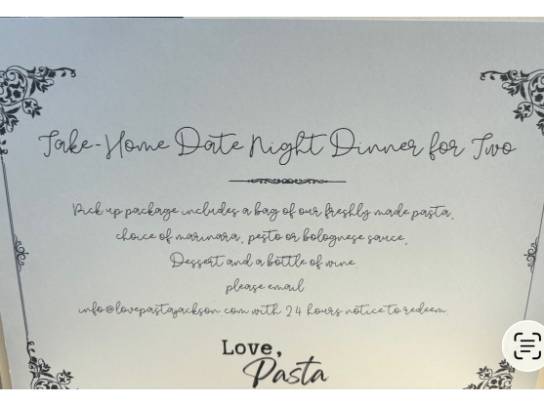 Take-Home Date Night Dinner for Two
Pick up package includes a bag of our freshly made pasta,
choice of marinara, pesto or bolognese sauce,
Dessert and a bottle of wine.
please email
info@lovepastajackson.com with 24 hours notice to redeem
Love,
Pasta